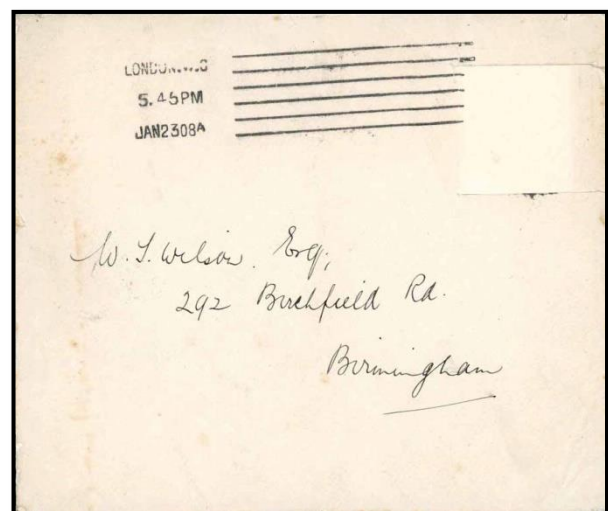 LONDON.W.C
5.45PM
JAN2308A
W. T. Wilson. Esq,
292 Birchfield Rd.
Birmingham